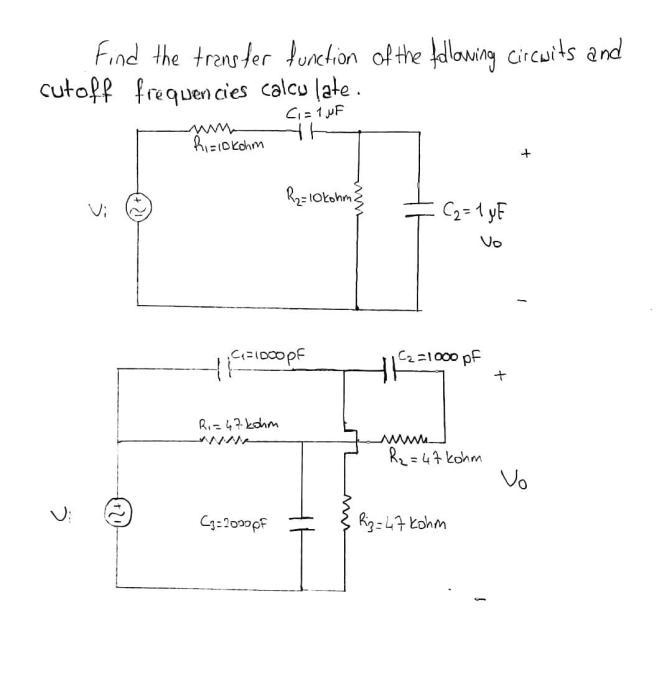 Find the transfer function of the following circuits and
cutoff frequencies calculate.
C1=1μF
R1=10kohm
+
R2=10kohm
Vi
C2=1μF
Vo
-
C1=1000pF
C2=1000pF
+
R1=47kohm
R2=47kohm
Vo
Vi
C3=2000pF
R3=47kohm
-